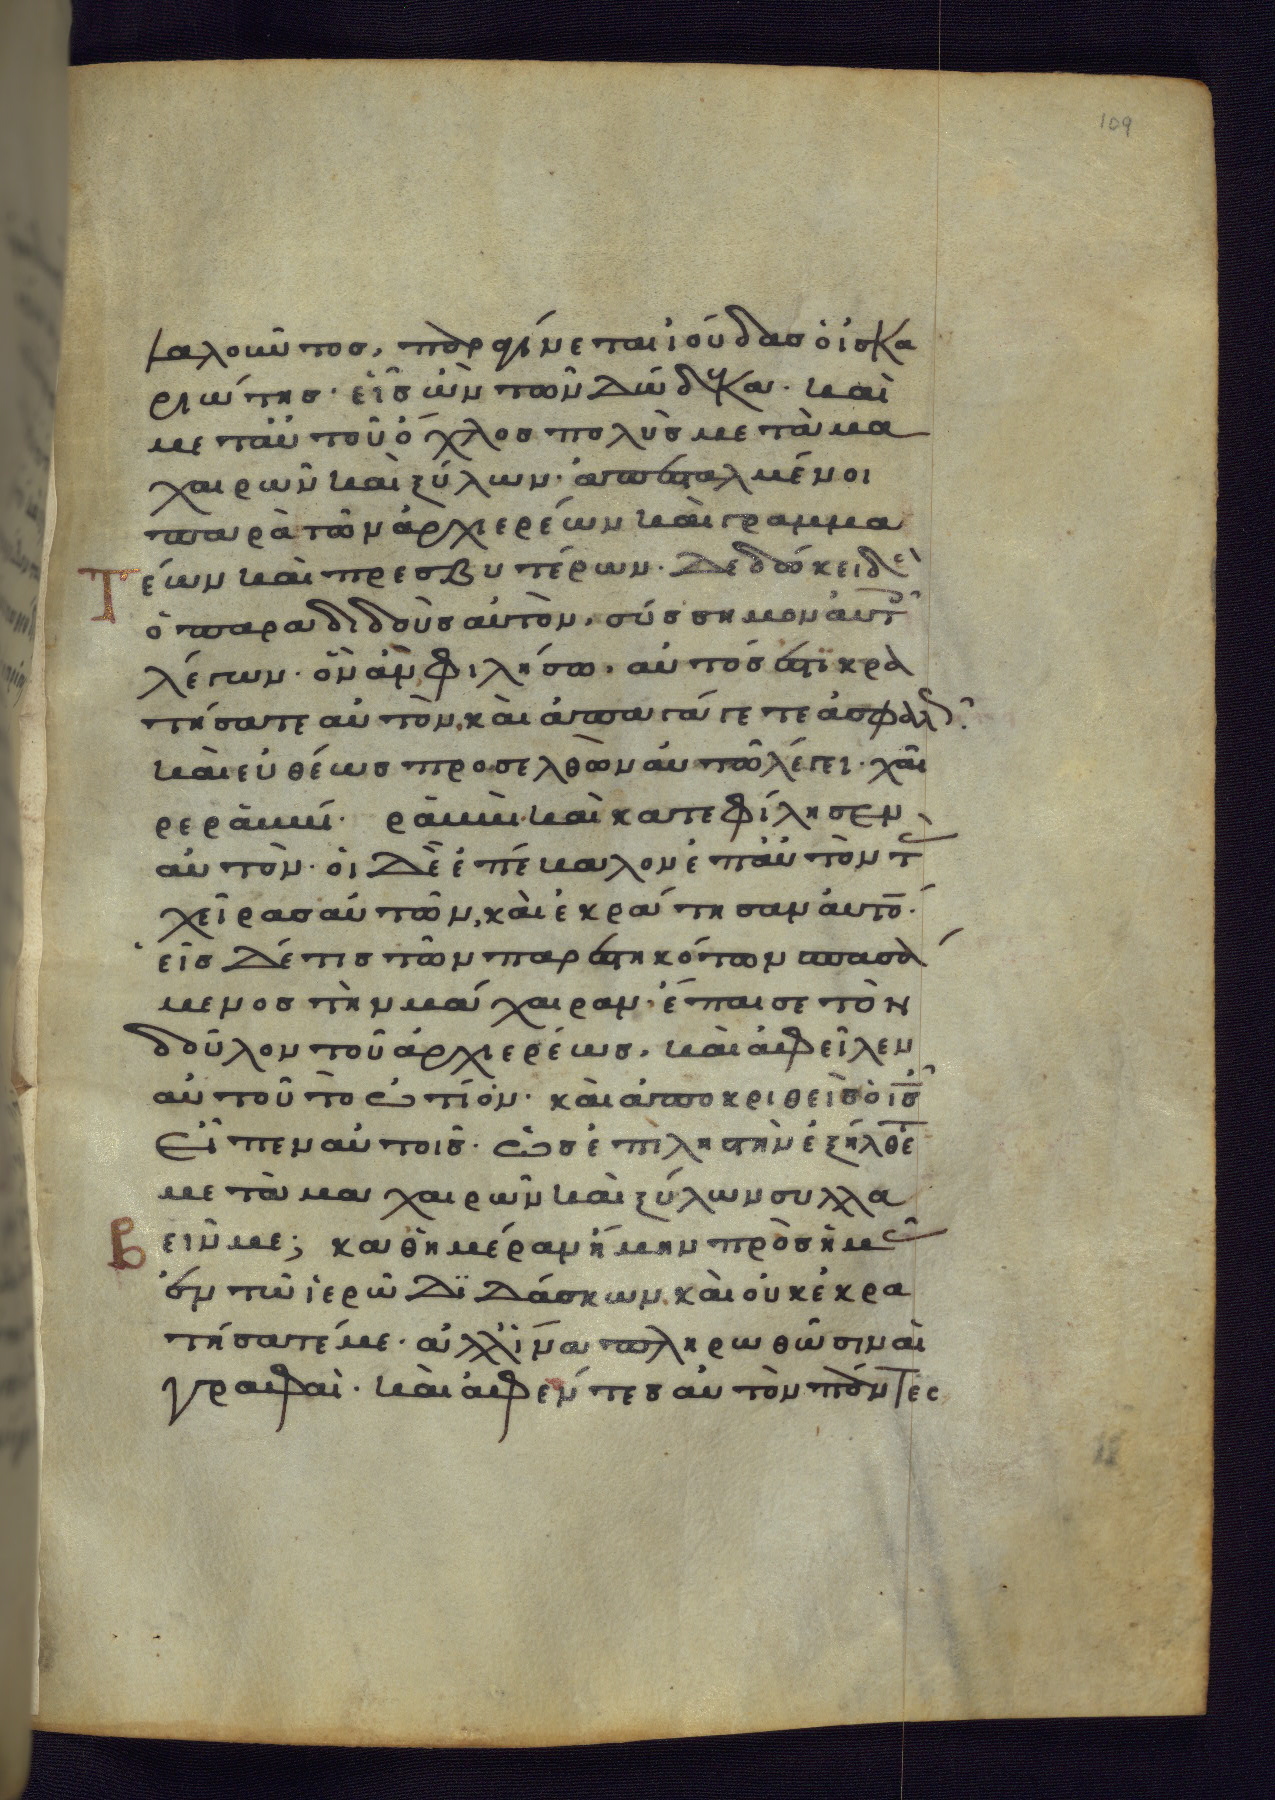 109
λαλοῦντος, παραγίνεται ἰούδας ὁ ἰσκα
ριώτης· εἷς ὢν τῶν δώδεκα· καὶ
μετ' αὐτοῦ ὄχλος πολὺς μετὰ μα
χαιρῶν καὶ ξύλων· ἀπεσταλμένοι
παρὰ τῶν ἀρχιερέων καὶ γραμμα
Τέων καὶ πρεσβυτέρων· Δεδώκει δὲ
ὁ παραδιδοὺς αὐτὸν, σύσσημον αὐτοῖς
λέγων· ὃν ἂν φιλήσω, αὐτός ἐστι κρα
τήσατε αὐτὸν, καὶ ἀπαγάγετε ἀσφαλῶς.
καὶ εὐθέως προσελθὼν αὐτῶ λέγει· χαῖ
ρε ῥαββί· ῥαββὶ· καὶ κατεφίλησεν
αὐτὸν· οἱ Δὲ ἐπέβαλον ἐπ' αὐτὸν τὰς
χεῖρας αὐτῶν, καὶ ἐκράτησαν αὐτόν·
εἷς Δέ τις τῶν παρεστηκότων σπασά
μενος τὴν μάχαιραν· ἔπαισε τὸν
δοῦλον τοῦ ἀρχιερέως, καὶ ἀφεῖλεν
αὐτοῦ τὸ ὠτίον· καὶ ἀποκριθεὶς ὁ ἰς
εἶπεν αὐτοῖς· ὡς ἐπὶ ληστὴν ἐξήλθετε
μετὰ μαχαιρῶν καὶ ξύλων συλλα
Βεῖν με; καθ' ἡμέραν ἤμην πρὸς ἡμᾶς
ἐν τῶ ἱερῶ Διδάσκων, καὶ οὐκ ἐκρα
τήσατέ με· ἀλλ' ἵνα πληρωθῶσιν αἱ
γραφαὶ· καὶ ἀφέντες αὐτὸν πάντες